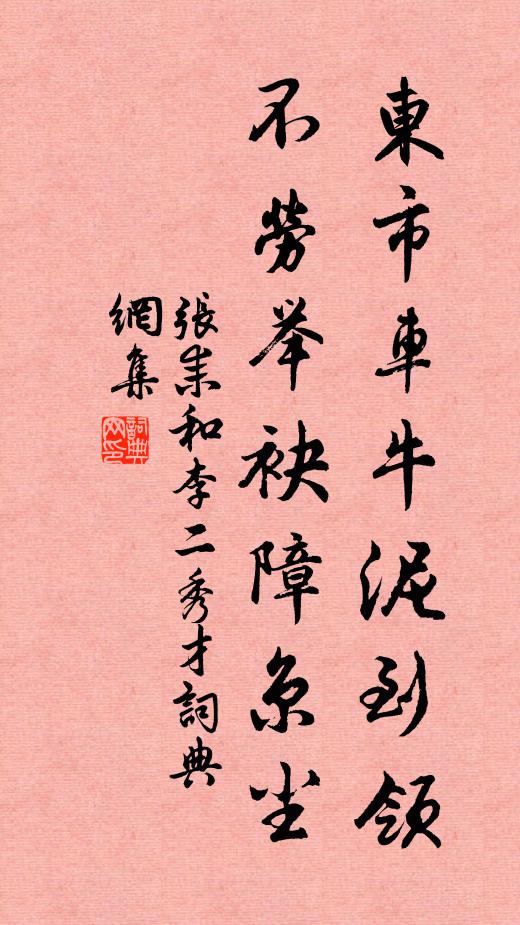 東市車牛泥到領
不勞举袂障京尘
張耒和李二秀才詞典
網集
詞典
网印